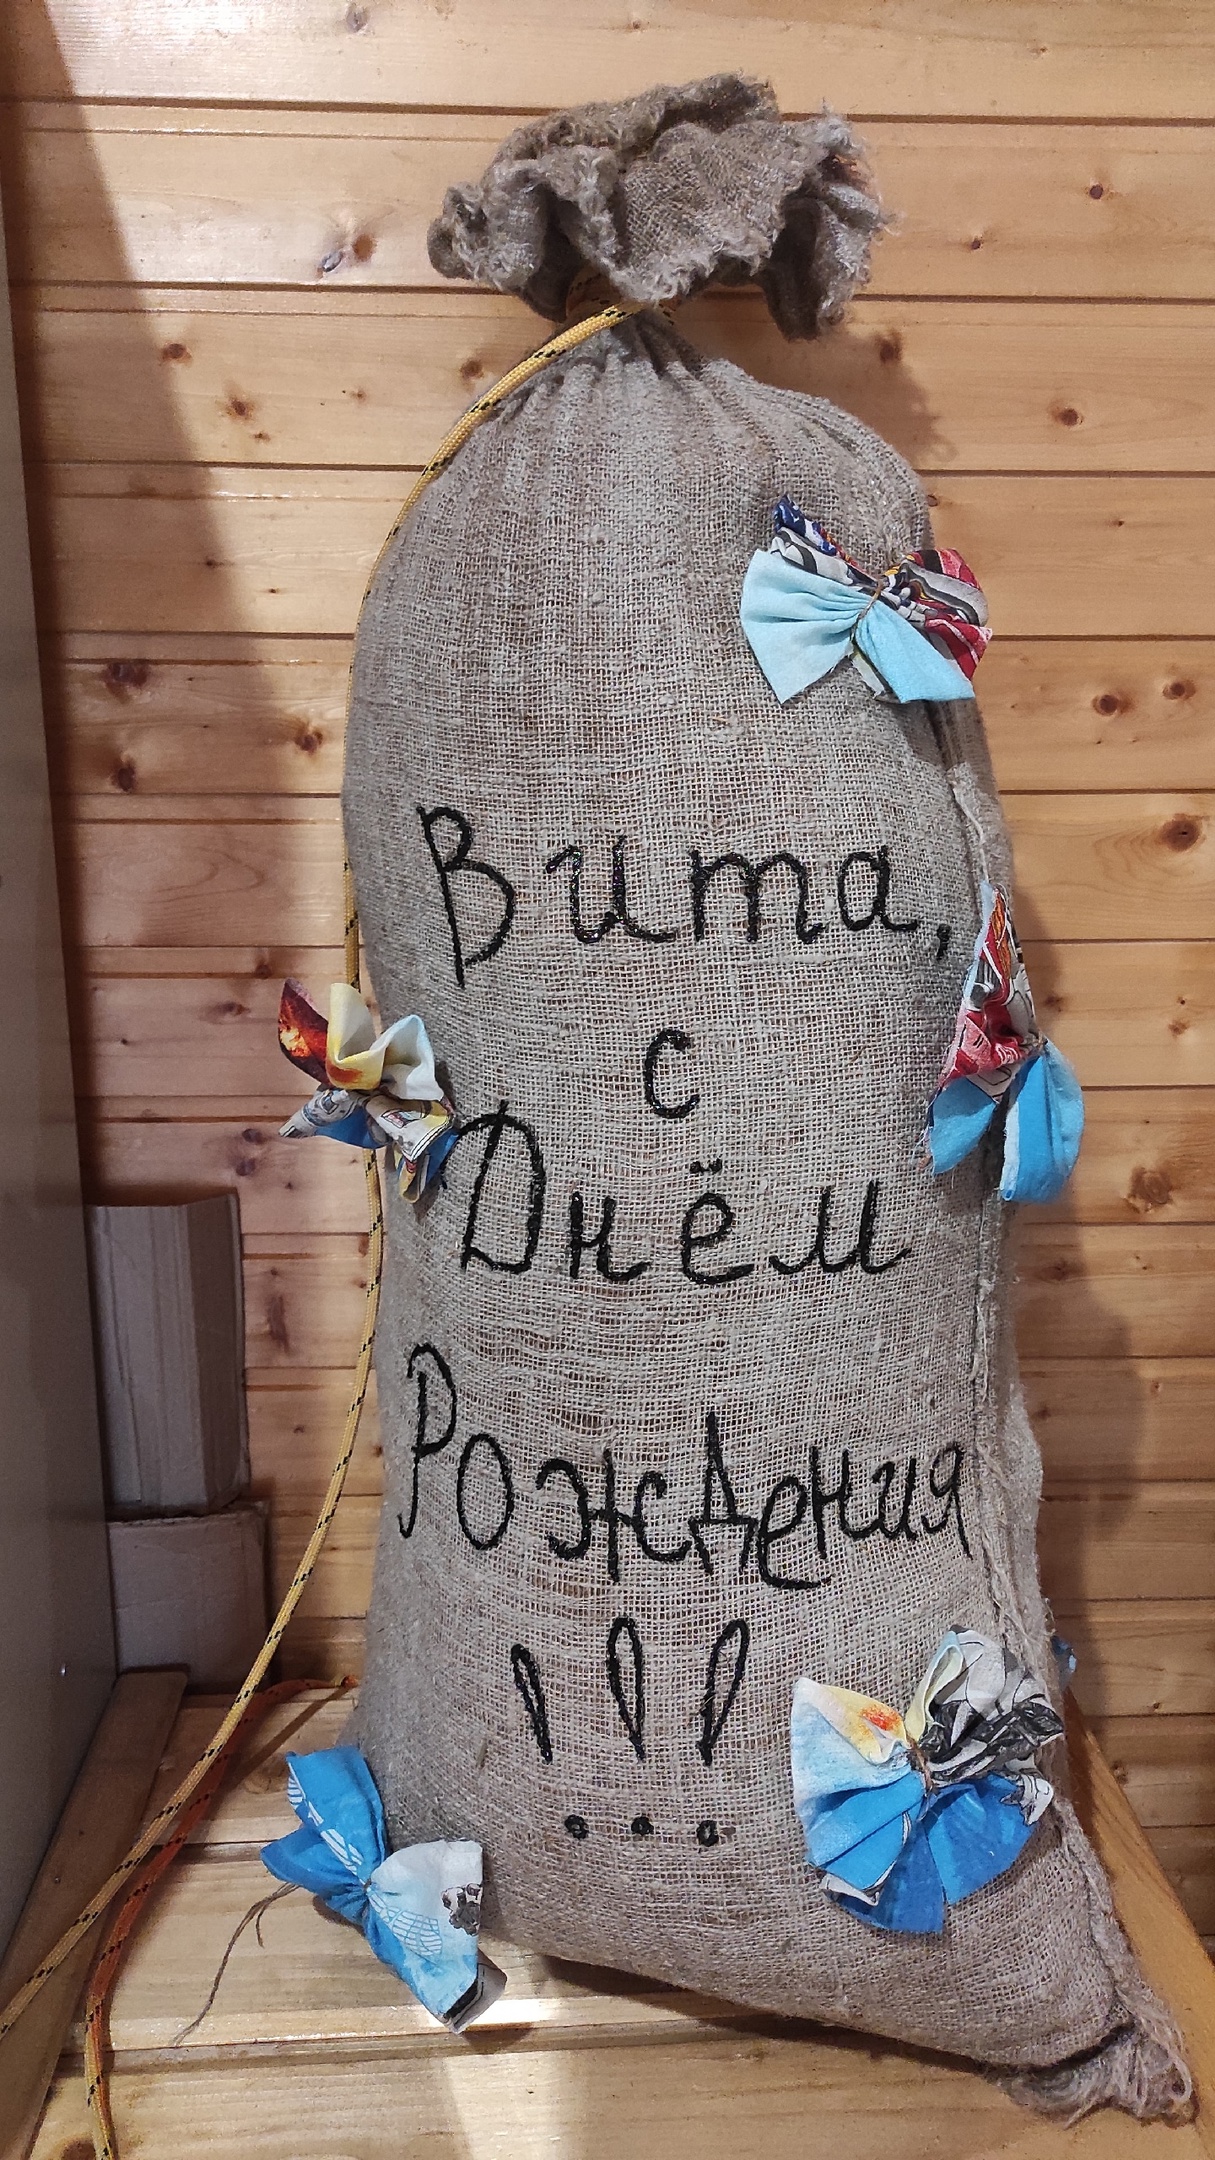 Вита,
с
Днём
Рождения
!!!